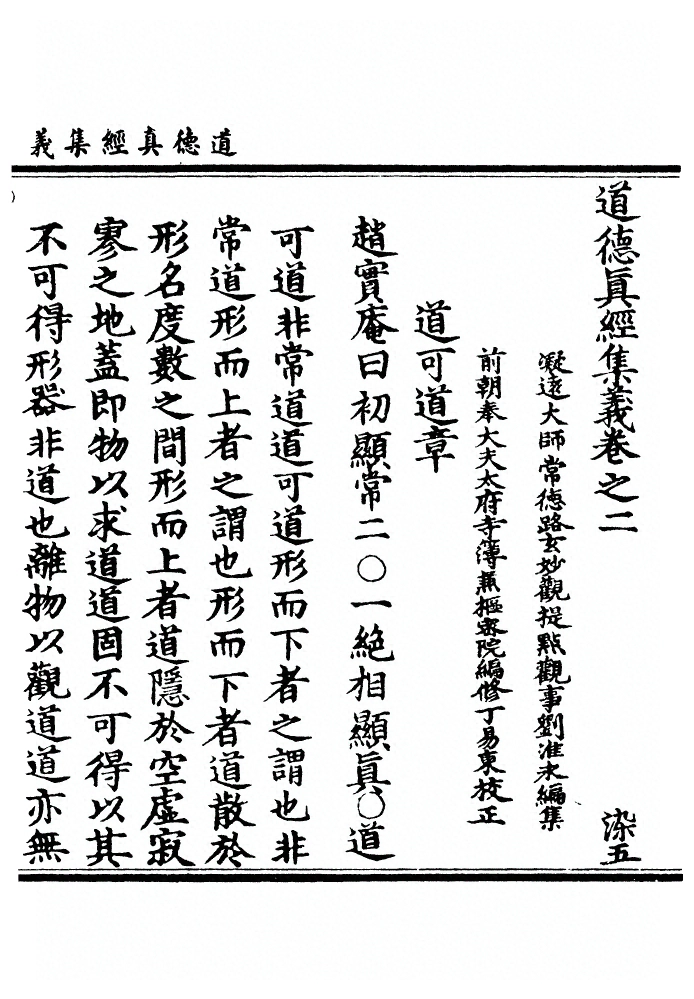 道德真經集義
道德眞經集義卷之二 染五
凝遠大師常德路玄妙觀提點觀事劉惟永編集
前朝奉大夫太府寺簿兼樞密院編修丁易東校正
道可道章
趙實庵曰初顯常二〇一絶相顯眞〇道
可道非常道道可道形而下者之謂也非
常道形而上者之謂也形而下者道散於
形名度數之間形而上者道隱於空虛寂
寥之地蓋即物以求道道固不可得以其
不可得形器非道也離物以觀道道亦無